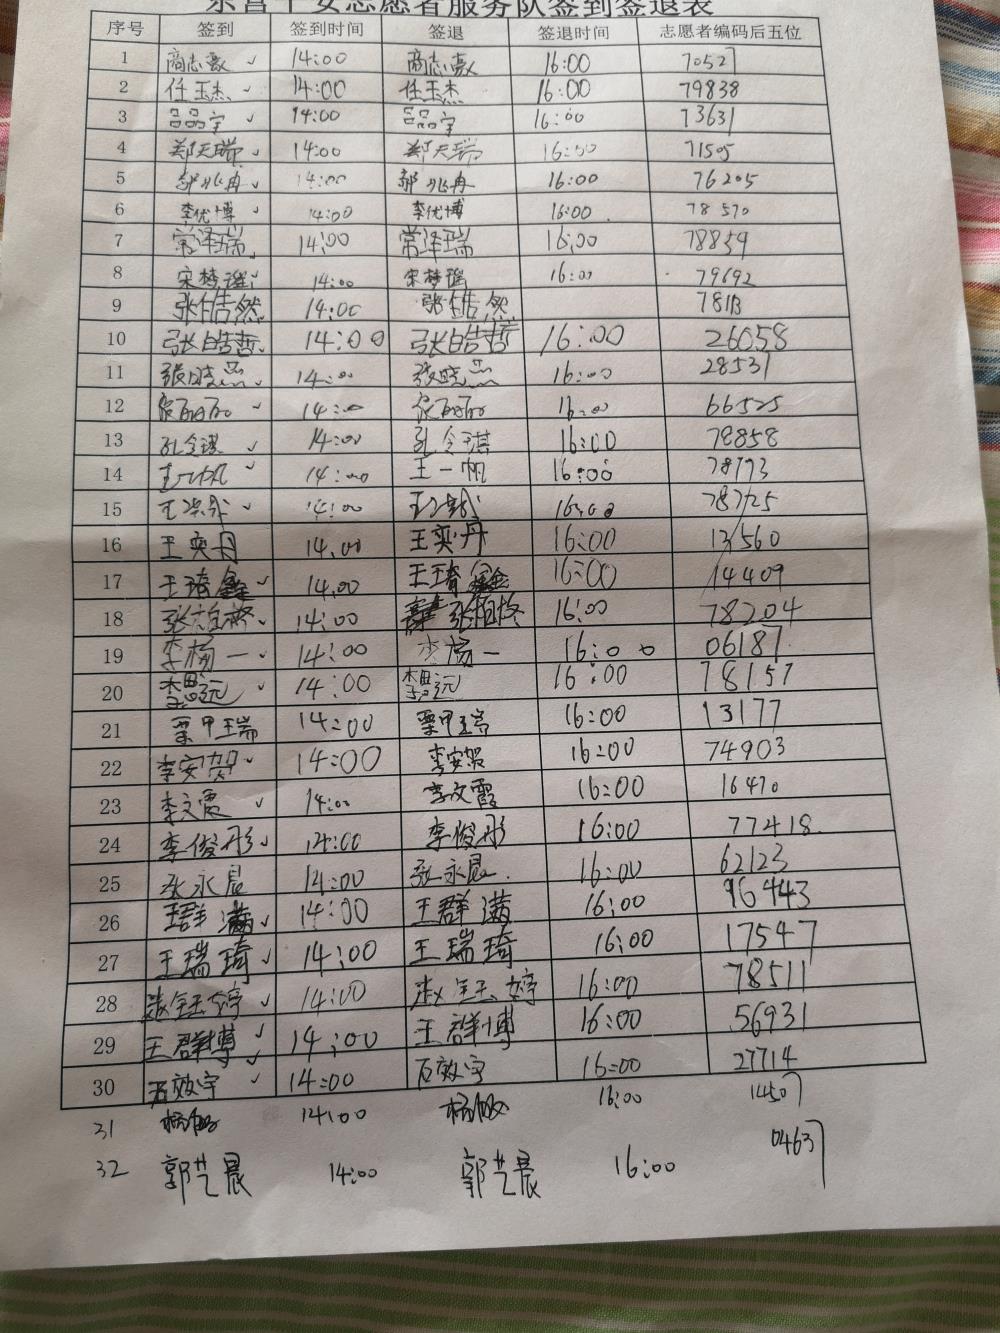 东营平安志愿者服务队签到签退表
序号 签到 签到时间 签退 签退时间 志愿者编码后五位
1 商志豪 ✓ 14:00 商志豪 16:00 70527
2 任玉杰 ✓ 14:00 任玉杰 16:00 79838
3 吕品宇 ✓ 14:00 吕品宇 16:00 73631
4 郑天瑞 ✓ 14:00 郑天瑞 16:00 71505
5 郭兆冉 ✓ 14:00 郭兆冉 16:00 76205
6 李优博 ✓ 14:00 李优博 16:00 78570
7 常泽瑞 14:00 常泽瑞 16:00 78859
8 宋梦瑶 14:00 宋梦瑶 16:00 79692
9 张皓然 14:00 张皓然
10 张皓哲 14:00 张皓哲 16:00 26058
11 张晓 14:00 张晓 16:00 28531
12 ✓ 14:00 16:00 66525
13 孔令琪 ✓ 14:00 孔令淇 16:00 78858
14 王一帆 ✓ 14:00 王一帆 16:00 78773
15 ✓ 14:00 16:00 78725
16 王奕丹 14:00 王奕丹 16:00 13560
17 王琦鑫 ✓ 14:00 王琦鑫 16:00 14409
18 张柏 ✓ 14:00 张柏 16:00 78204
19 李杨一 ✓ 14:00 李杨一 16:00 06187
20 李思远 ✓ 14:00 李思远 16:00 78157
21 栗甲瑞 14:00 栗甲瑞 16:00 13177
22 李安贺 ✓ 14:00 李安贺 16:00 74903
23 李文霞 ✓ 14:00 李文霞 16:00 16470
24 李俊彤 ✓ 14:00 李俊彤 16:00 77418
25 张永晨 14:00 张永晨 16:00 62123
26 王群满 ✓ 14:00 王群满 16:00 96443
27 王瑞琦 ✓ 14:00 王瑞琦 16:00 17547
28 钰婷 ✓ 14:00 赵钰婷 16:00 78511
29 王群博 ✓ 14:00 王群博 16:00 56931
30 石效宇 ✓ 14:00 石效宇 16:00 27714
31 14:00 16:00 14507
32 郭艺晨 14:00 郭艺晨 16:00 04637